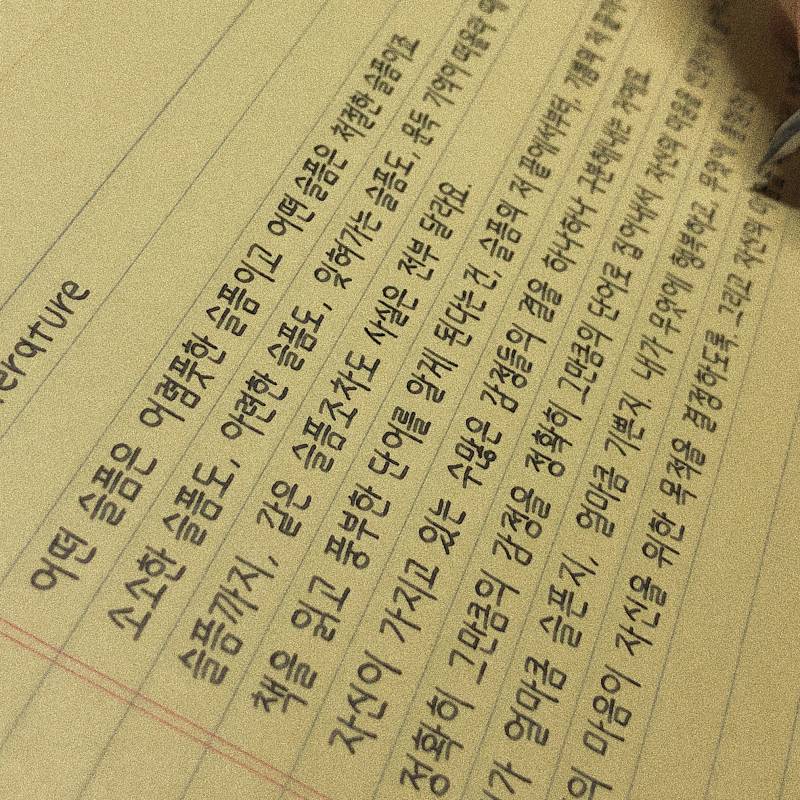 erature
어떤 슬픔은 어렴풋한 슬픔이고 어떤 슬픔은 처절한 슬픔이죠
소소한 슬픔도, 아련한 슬픔도, 잊혀가는 슬픔도, 문득 기억이 떠올라
슬픔까지, 같은 슬픔조차도 사실은 전부 달라요.
책을 읽고 풍부한 단어를 알게 된다는건, 슬픔의 저 끝에서부터, 기쁨의 저
자신이 가지고 있는 수많은 감정들의 결을 하나하나 구분해내는 거예요
정확히 그만큼의 감정을 정확히 그만큼의 단어로 집어내서 자신의 마음을
가 얼마큼 슬픈지, 얼마큼 기쁜지. 내가 무엇에 행복하고, 무엇에
의 마음이 자신을 위한 목적을 결정하도록. 그리고 자신의